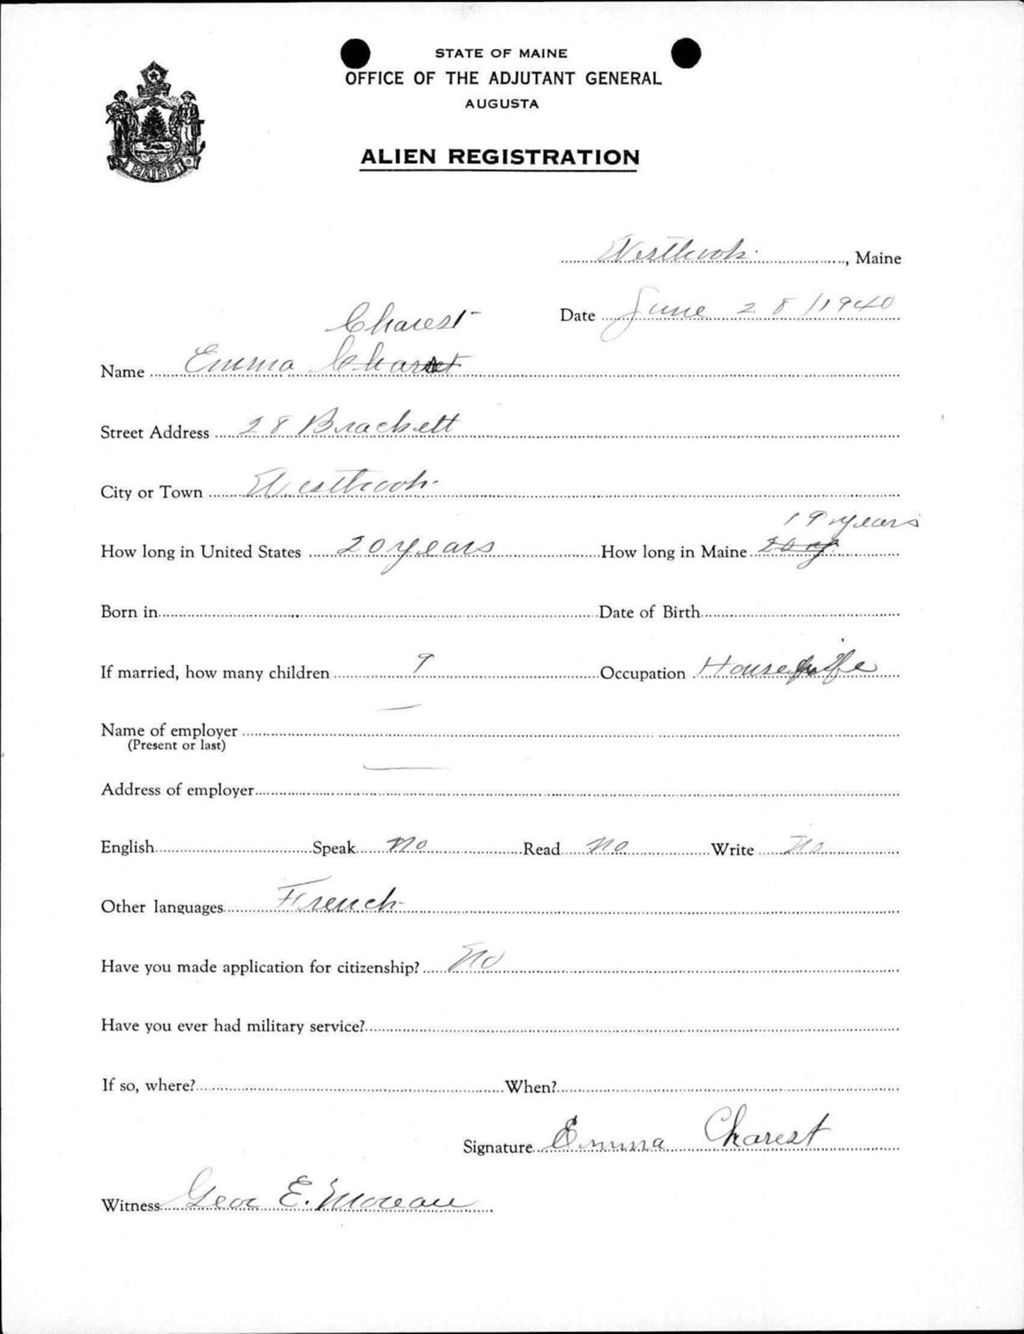 STATE OF MAINE
OFFICE OF THE ADJUTANT GENERAL
AUGUSTA
ALIEN REGISTRATION
MAINE
Westbrook, Maine
Date June 28 / 1940
Charest
Name Emma
Street Address 28 Brackett
City or Town Westbrook
19 years
How long in United States 20 years How long in Maine 20 y
Born in Date of Birth
If married, how many children 9 Occupation Housewife
Name of employer
(Present or last)
Address of employer
English Speak No Read No Write No
Other languages French
Have you made application for citizenship? No
Have you ever had military service?
If so, where? When?
Signature Emma Charest
Witness Geo E. Moreau